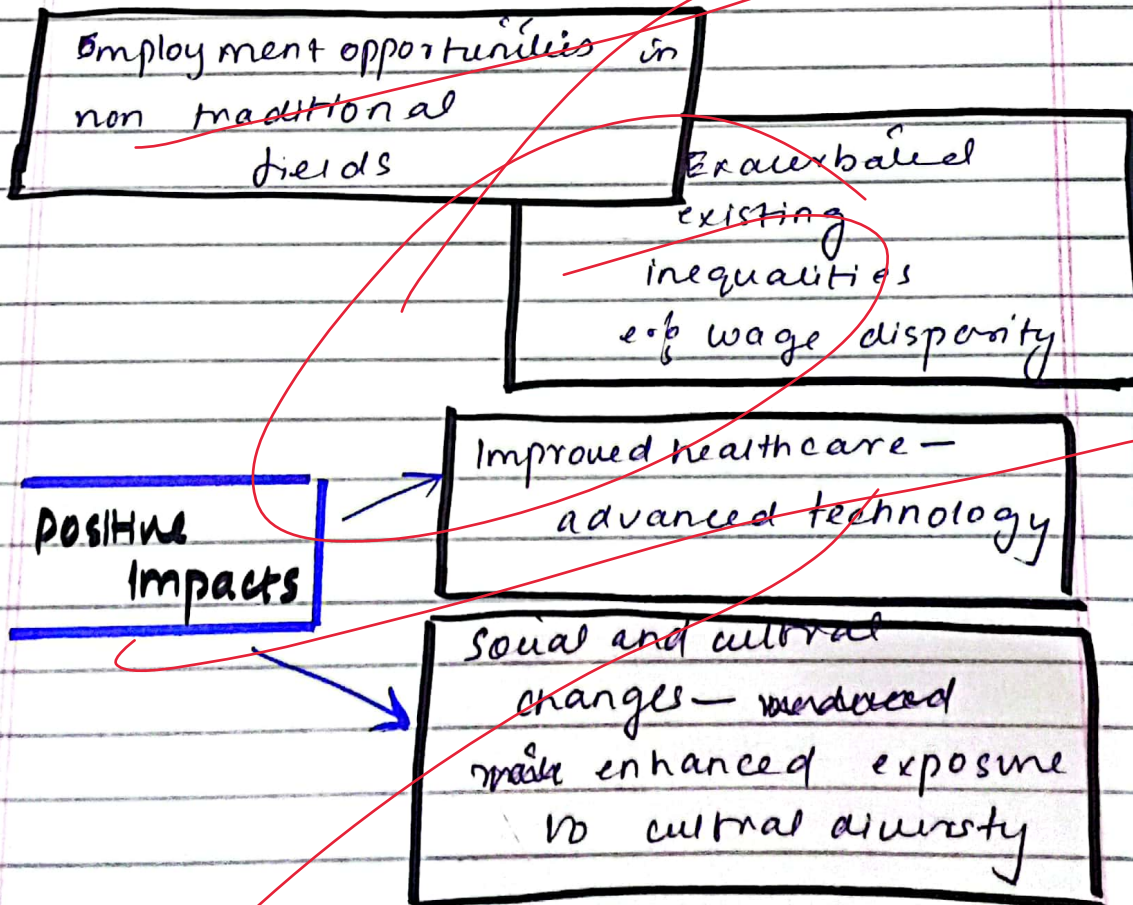 Employment opportunities in
non traditional
fields
Exacerbated
existing
inequalities
e.g wage disparity
Improved healthcare —
advanced technology
Positive
Impacts
Social and cultural
changes —
enhanced exposure
to cultural diversity